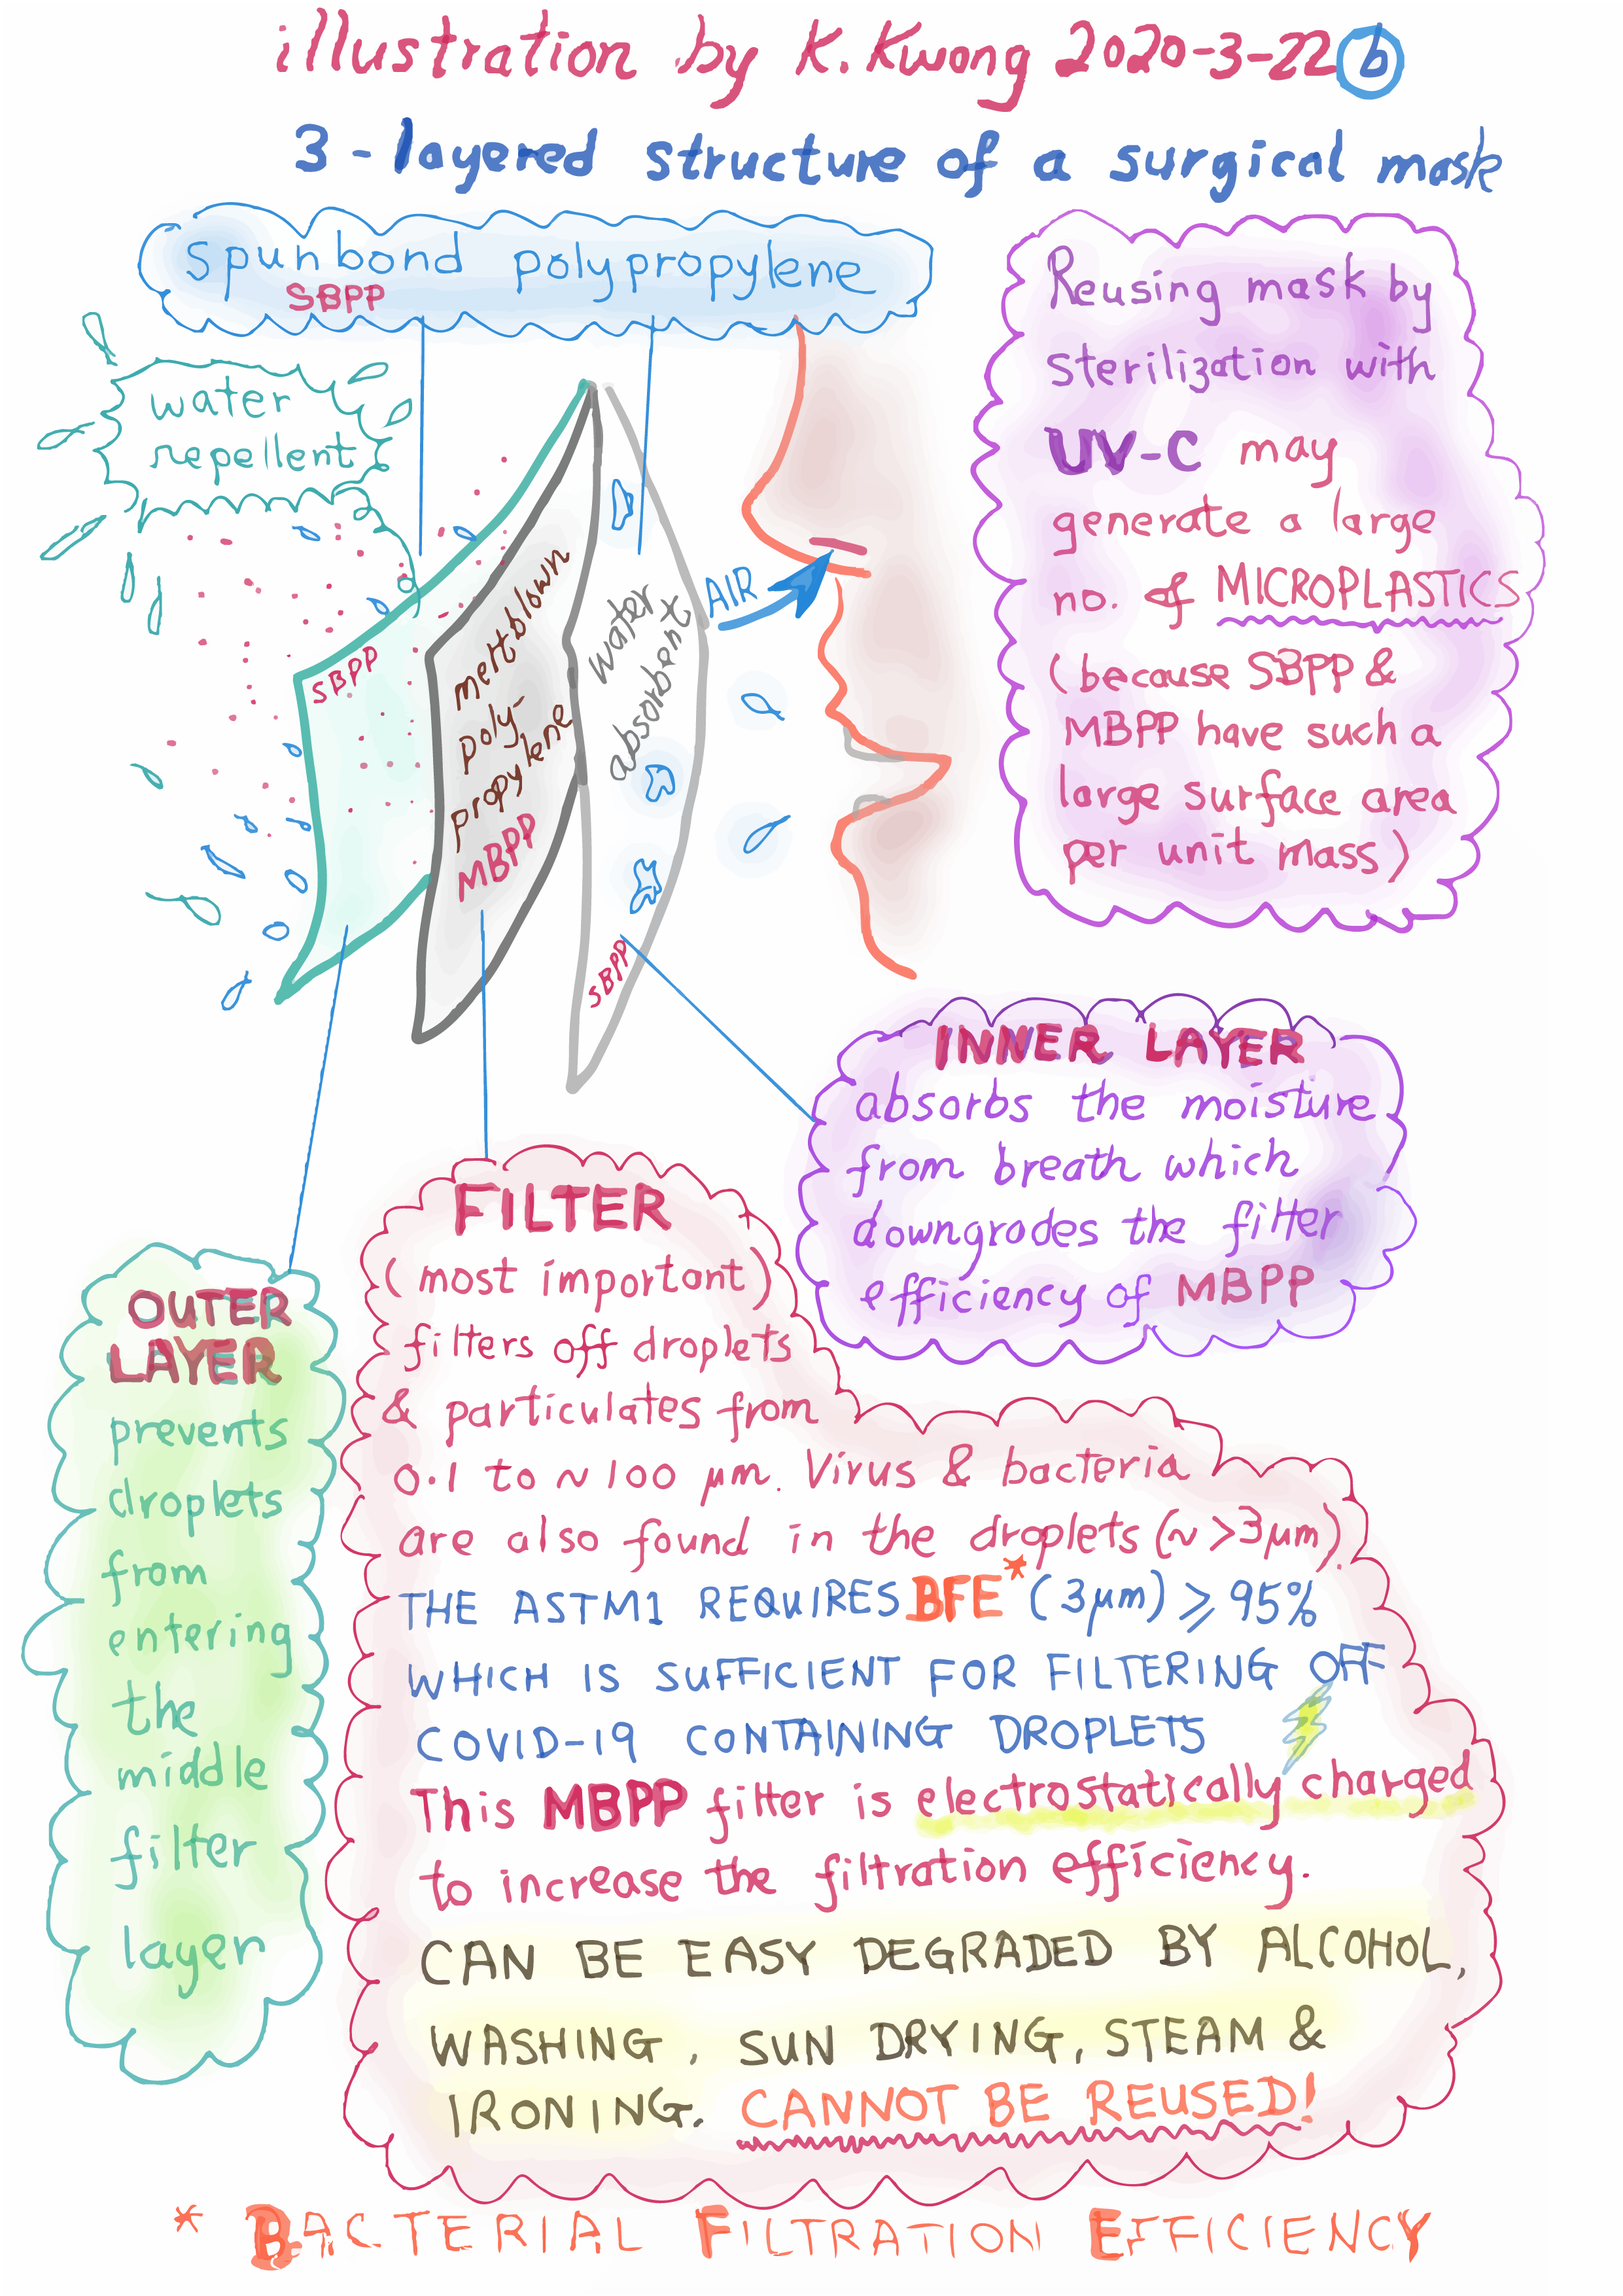 illustration by K. Kwong 2020-3-22 b
3-layered structure of a surgical mask
spunbond polypropylene
SBPP
water
repellent
SBPP
meltblown
poly-
propylene
MBPP
water
absorbent
SBPP
AIR
Reusing mask by
sterilization with
UV-C may
generate a large
no. of MICROPLASTICS
(because SBPP &
MBPP have such a
large surface area
per unit mass)
INNER LAYER
absorbs the moisture
from breath which
downgrades the filter
efficiency of MBPP
FILTER
(most important)
filters off droplets
& particulates from
0.1 to ~100 µm. Virus & bacteria
are also found in the droplets (~>3µm).
THE ASTM1 REQUIRES BFE* (3µm) ⩾ 95%
WHICH IS SUFFICIENT FOR FILTERING OFF
COVID-19 CONTAINING DROPLETS
This MBPP filter is electrostatically charged
to increase the filtration efficiency.
CAN BE EASY DEGRADED BY ALCOHOL,
WASHING, SUN DRYING, STEAM &
IRONING. CANNOT BE REUSED!
OUTER
LAYER
prevents
droplets
from
entering
the
middle
filter
layer
* BACTERIAL FILTRATION EFFICIENCY